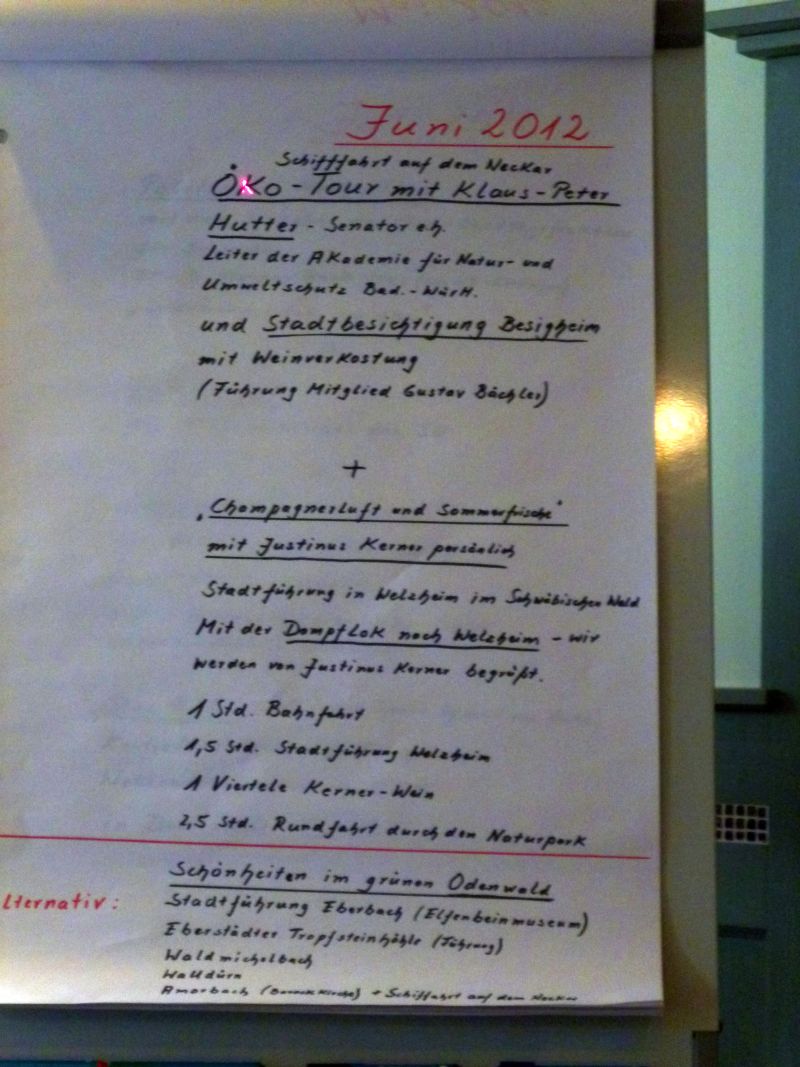 Juni 2012
Schifffahrt auf dem Neckar
Öko-Tour mit Klaus-Peter
Hutter - Senator e.h.
Leiter der Akademie für Natur- und
Umweltschutz Bad.-Württ.
und Stadtbesichtigung Besigheim
mit Weinverkostung
(Führung Mitglied Gustav Bächler)
+
„Champagnerluft und Sommerfrische"
mit Justinus Kerner persönlich
Stadtführung in Welzheim im Schwäbischen Wald
Mit der Dampflok nach Welzheim - wir
werden von Justinus Kerner begrüßt.
1 Std. Bahnfahrt
1,5 Std. Stadtführung Welzheim
1 Viertele Kerner-Wein
2,5 Std. Rundfahrt durch den Naturpark
Schönheiten im grünen Odenwald
lternativ: Stadtführung Eberbach (Elfenbeinmuseum)
Eberstädter Tropfsteinhöhle (Führung)
Waldmichelbach
Walldürn
Amorbach (Barockkirche) + Schiffahrt auf dem Neckar